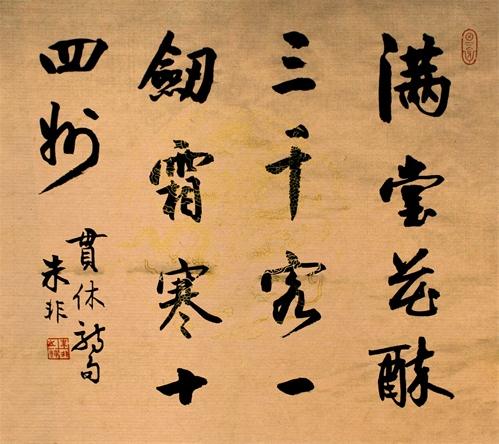 满堂花醉
三千客一
劒霜寒十
四州
貫休詩句
朱非